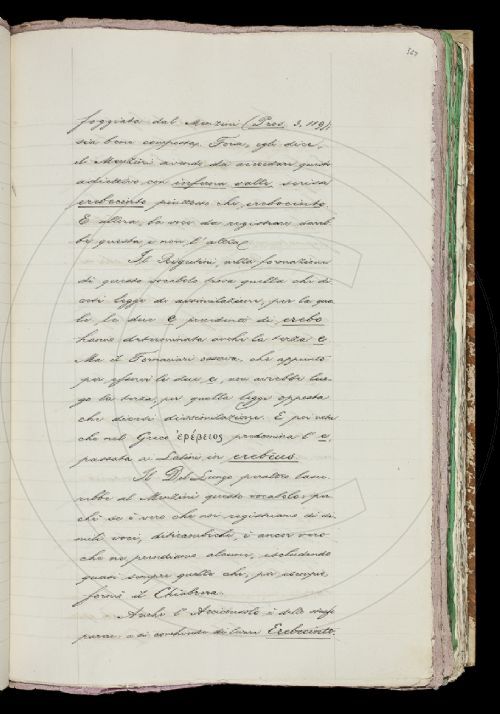 327
foggiato dal Menzini (Pros. 3. 119),
sia bene composta. Forse, egli dice,
il Menzini avendo da accordar questo
adiettivo con inferna valle, scrisse
erebecinto piuttosto che, erebocinto.
E allora la voce da registrare sareb-
be questa e non l'altra.
Il Rigutini, nella formazione
di questo vocabolo trova quella che di-
cesi legge di assimilazione, per la qua-
le le due e precedenti di erebo
hanno determinata anche la terza e.
Ma il Tornaciari osserva, che appunto
per esservi le due e, non avrebbe luo-
go la terza, per quella legge opposta
che dicesi dissimilazione. E poi nota
che nel Greco ἐρέβειος predomina l' e,
passata a' Latini in erebeus.
Il Del Lungo peraltro lasce-
rebbe al Menzini questo vocabolo; per-
chè se è vero che noi registriamo di si-
mili voci, ditirambiche, è ancor vero
che ne prendiamo alcune, escludendo
quasi sempre quelle che, per esempio,
formò il Chiabrera.
Anche l'Arciconsolo è dello stesso
parere; e si conchiude di levare Erebecinto.